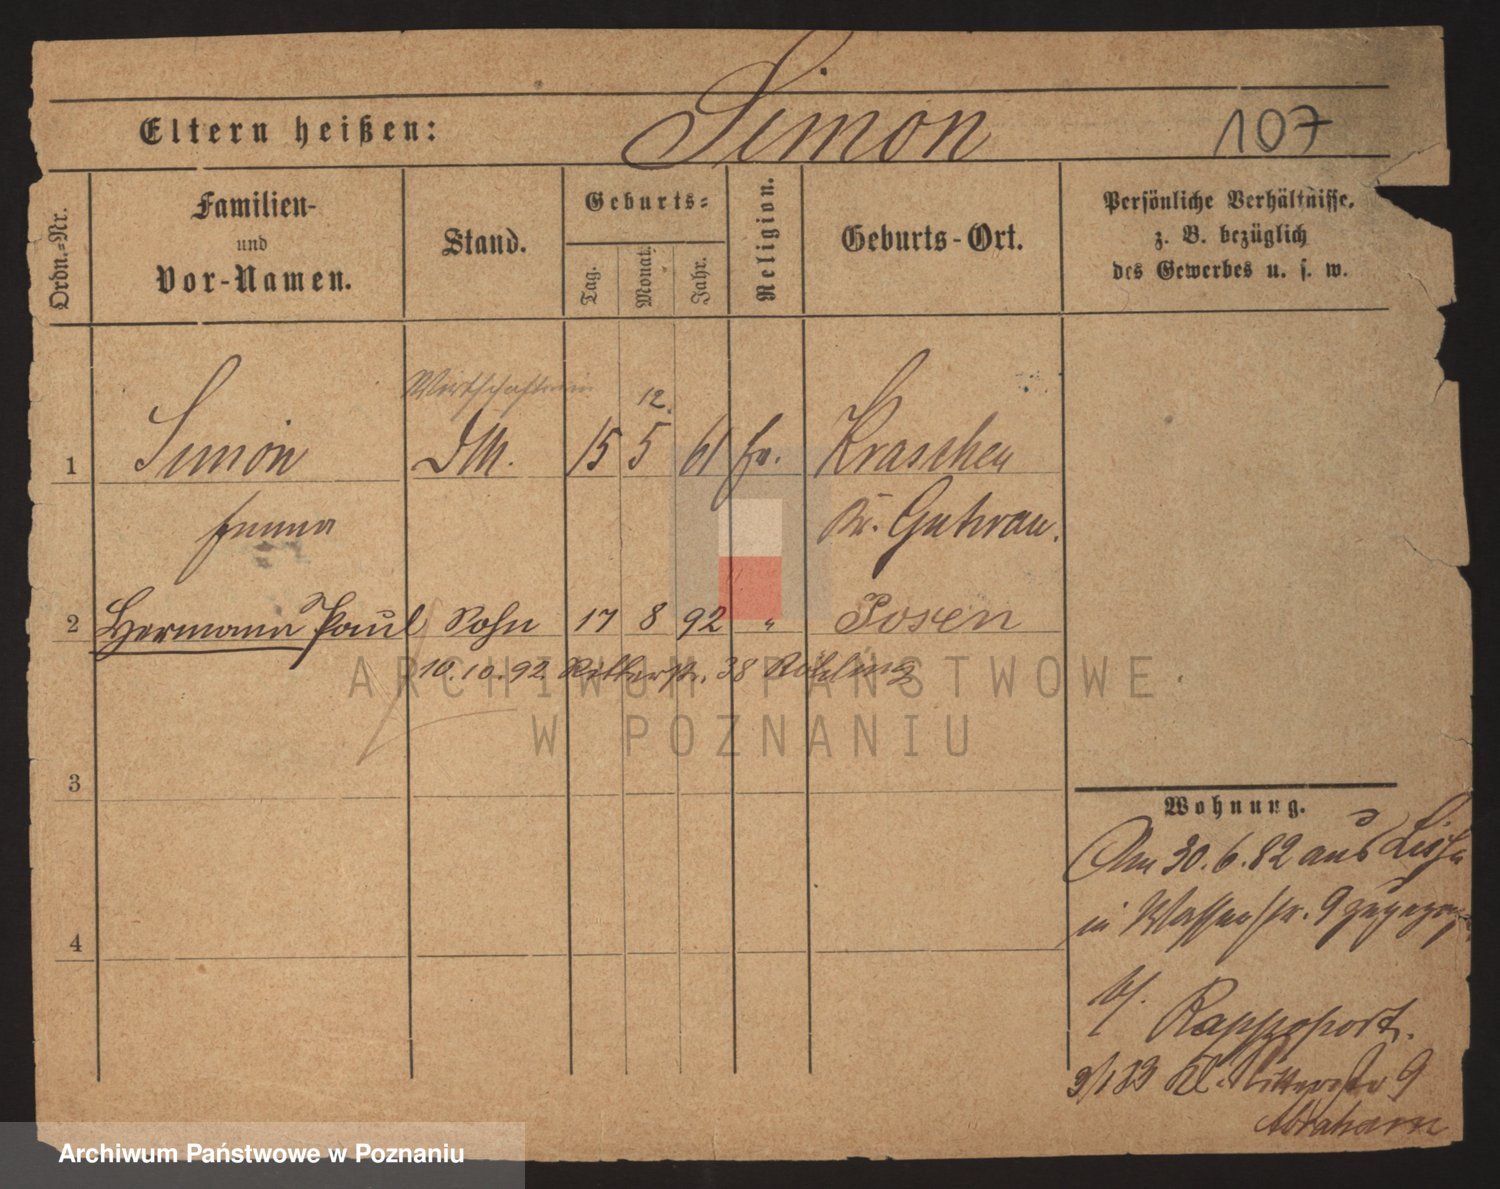 Simon
Eltern heißen:
107
Ordn.=Nr.
Familien-
und
Vor-Namen.
Stand.
Geburts=
Tag.
Monat.
Jahr.
Religion.
Geburts-Ort.
Persönliche Verhältnisse,
z. B. bezüglich
des Gewerbes u. s. w.
Wirtschafterin
12.
1 Simon DM. 15 5 61 ev. Kraschen
Emma Kr. Guhrau.
2 Hermann Paul Sohn 17 8 92 " Posen
10.10.92 Ritterstr. 38
3
4
Wohnung.
Am 30.6.82 aus Lissa
in Wasserstr. 9 zugezog
b/. Rappoport.
3/1 83 Kl. Ritterstr 9
Abraham
ARCHIWUM PAŃSTWOWE
W POZNANIU
Archiwum Państwowe w Poznaniu